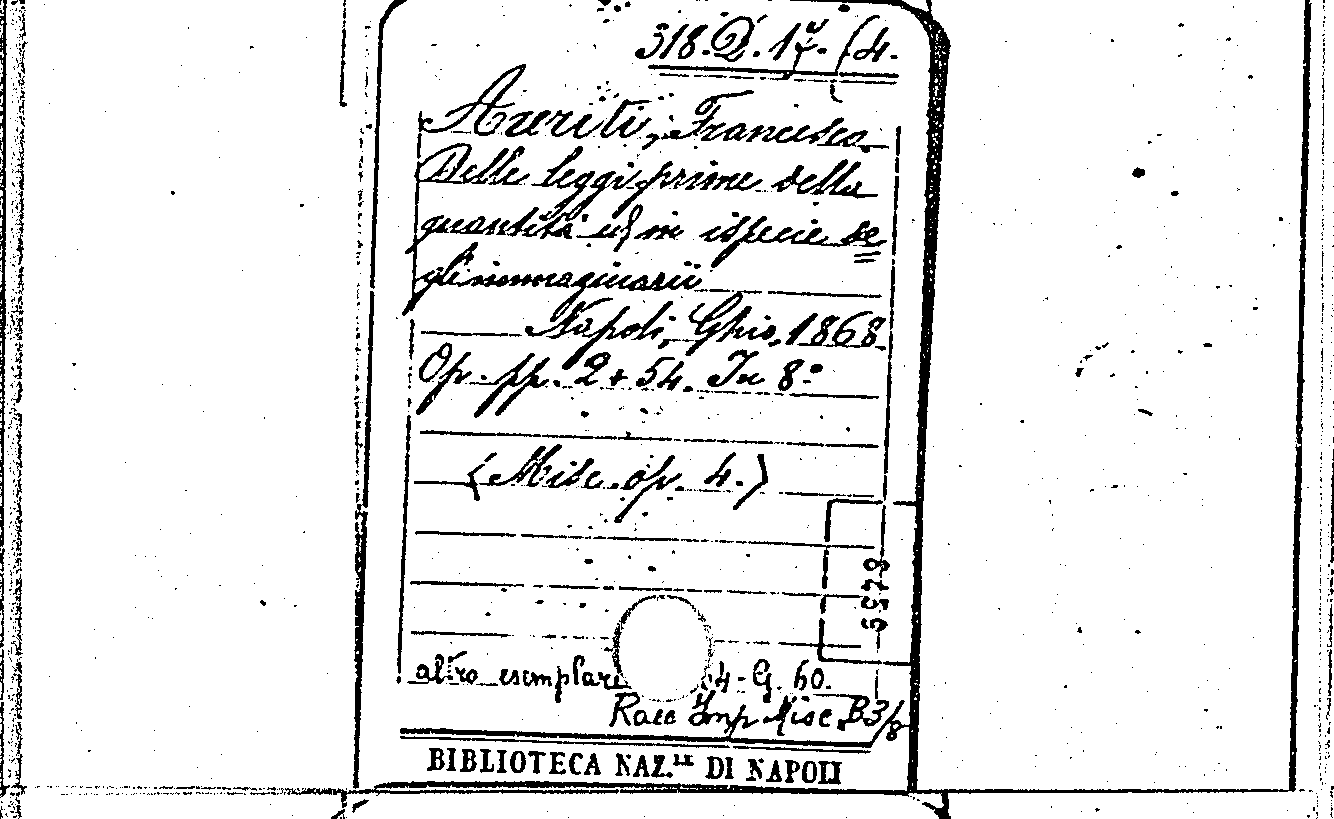 318. D. 1 (4.
Azzriti, Francesco
Delle leggi prime della
quantità ed in ispecie de
gli immaginarii
Napoli, Ghio, 1868
Op. pp. 2 + 54. In 8.°
(Misc. op. 4.)
6578
altro esemplare 4-G. 60.
Racc Imp Misc. B3/8
BIBLIOTECA NAZ.LE DI NAPOLI